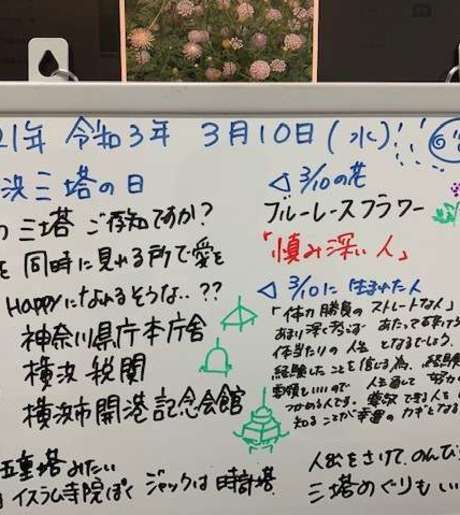 21年 令和3年 3月10日(水)
浜三塔の日
三塔 ご存知ですか?
を 同時に見れる所で愛を
Happyになれるそうな..??
神奈川県庁本庁舎
横浜税関
横浜市開港記念会館
五重塔みたい
イスラム寺院ぽく ジャックは 時計塔
◁ 3/10の花
ブルーレースフラワー
「慎み深い人」
◁ 3/10に 生まれた人
「体力勝負の ストレートな人」
あまり深く考えず あたって
体当たりの 人生 となるでしょう.
経験したことを信じる為、経験
要領もいいので 人生通して 努力
つかめる人です。
知ることが 幸運の カギとなる
人出をさけて、のんび
三塔めぐりも い